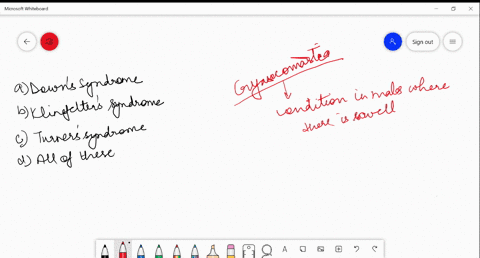 Microsoft Whiteboard
Sign out
a) Down's syndrome
b) Klinefelter's syndrome
c) Turner's syndrome
d) All of these
Gynaecomastia
condition in males where
there is swell